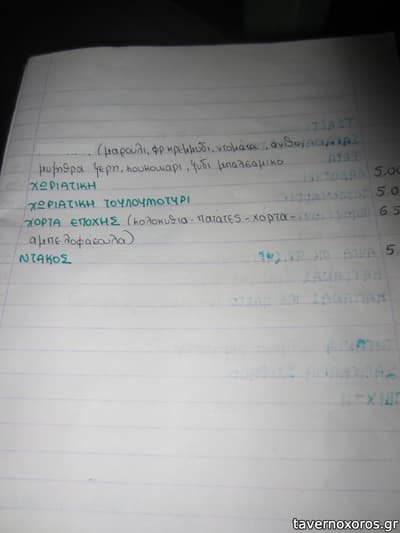 (μαρούλι, φρ κρεμμύδι, ντομάτα, ανθο
μυζηθρα ξερη, κουκουνάρι, ξυδι μπαλσαμικο
ΧΩΡΙΑΤΙΚΗ 5.00
ΧΩΡΙΑΤΙΚΗ ΤΟΥΛΟΥΜΟΤΥΡΙ 5.0
ΧΟΡΤΑ ΕΠΟΧΗΣ (κολοκυθια - πατάτες - χορτα - 6.5
αμπελοφασουλα)
ΝΤΑΚΟΣ 5.
tavernoxoros.gr